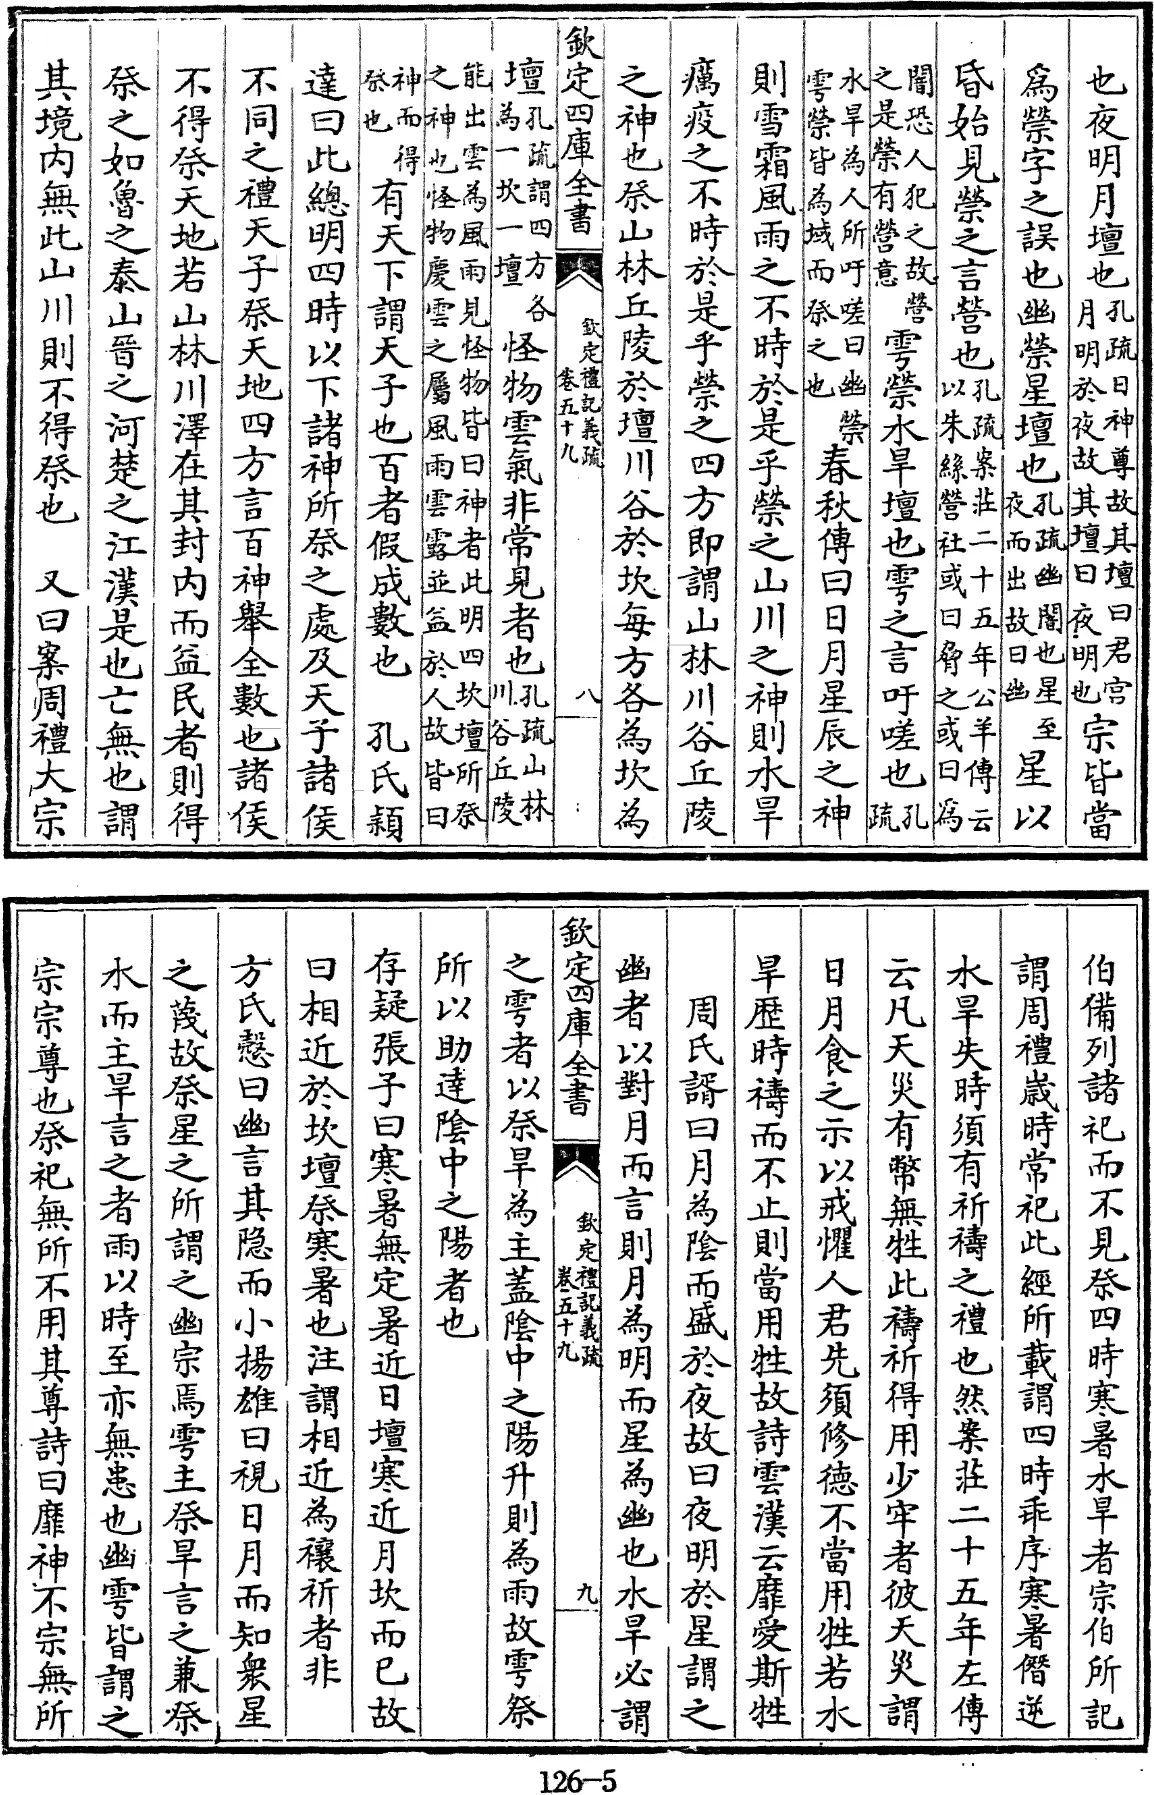 也夜明月壇也孔疏曰神尊故其壇曰君宮月明於夜故其壇曰夜明也宗皆當
爲禜字之誤也幽禜星壇也孔疏幽闇也星至夜而出故曰幽星以
昏始見禜之言營也孔疏案莊二十五年公羊傳云以朱絲營社或曰脅之或曰爲
闇恐人犯之故營之是禜有營意雩禜水旱壇也雩之言吁嗟也孔疏
水旱為人所吁嗟曰幽禜雩禜皆為域而祭之也春秋傳曰日月星辰之神
則雪霜風雨之不時於是乎禜之山川之神則水旱
癘疫之不時於是乎禜之四方即謂山林川谷丘陵
之神也祭山林丘陵於壇川谷於坎每方各為坎為
欽定四庫全書
欽定禮記義疏
卷五十九
八
壇孔疏謂四方各為一坎一壇怪物雲氣非常見者也孔疏山林川谷丘陵
能出雲為風雨見怪物皆曰神者此明四坎壇所祭之神也怪物慶雲之屬風雨雲露並益於人故皆曰
神而得祭也有天下謂天子也百者假成數也　孔氏穎
達曰此總明四時以下諸神所祭之處及天子諸侯
不同之禮天子祭天地四方言百神舉全數也諸侯
不得祭天地若山林川澤在其封内而益民者則得
祭之如魯之泰山晉之河楚之江漢是也亡無也謂
其境内無此山川則不得祭也　又曰案周禮大宗
伯備列諸祀而不見祭四時寒暑水旱者宗伯所記
謂周禮歲時常祀此經所載謂四時乖序寒暑僭逆
水旱失時須有祈禱之禮也然案莊二十五年左傳
云凡天災有幣無牲此禱祈得用少牢者彼天災謂
日月食之示以戒懼人君先須修德不當用牲若水
旱歷時禱而不止則當用牲故詩雲漢云靡愛斯牲
周氏諝曰月為陰而盛於夜故曰夜明於星謂之
幽者以對月而言則月為明而星為幽也水旱必謂
欽定四庫全書
欽定禮記義疏
卷五十九
九
之雩者以祭旱為主蓋陰中之陽升則為雨故雩祭
所以助達陰中之陽者也
存疑張子曰寒暑無定暑近日壇寒近月坎而已故
曰相近於坎壇祭寒暑也注謂相近為禳祈者非
方氏慤曰幽言其隐而小揚雄曰視日月而知衆星
之蔑故祭星之所謂之幽宗焉雩主祭旱言之兼祭
水而主旱言之者雨以時至亦無患也幽雩皆謂之
宗宗尊也祭祀無所不用其尊詩曰靡神不宗無所
126-5